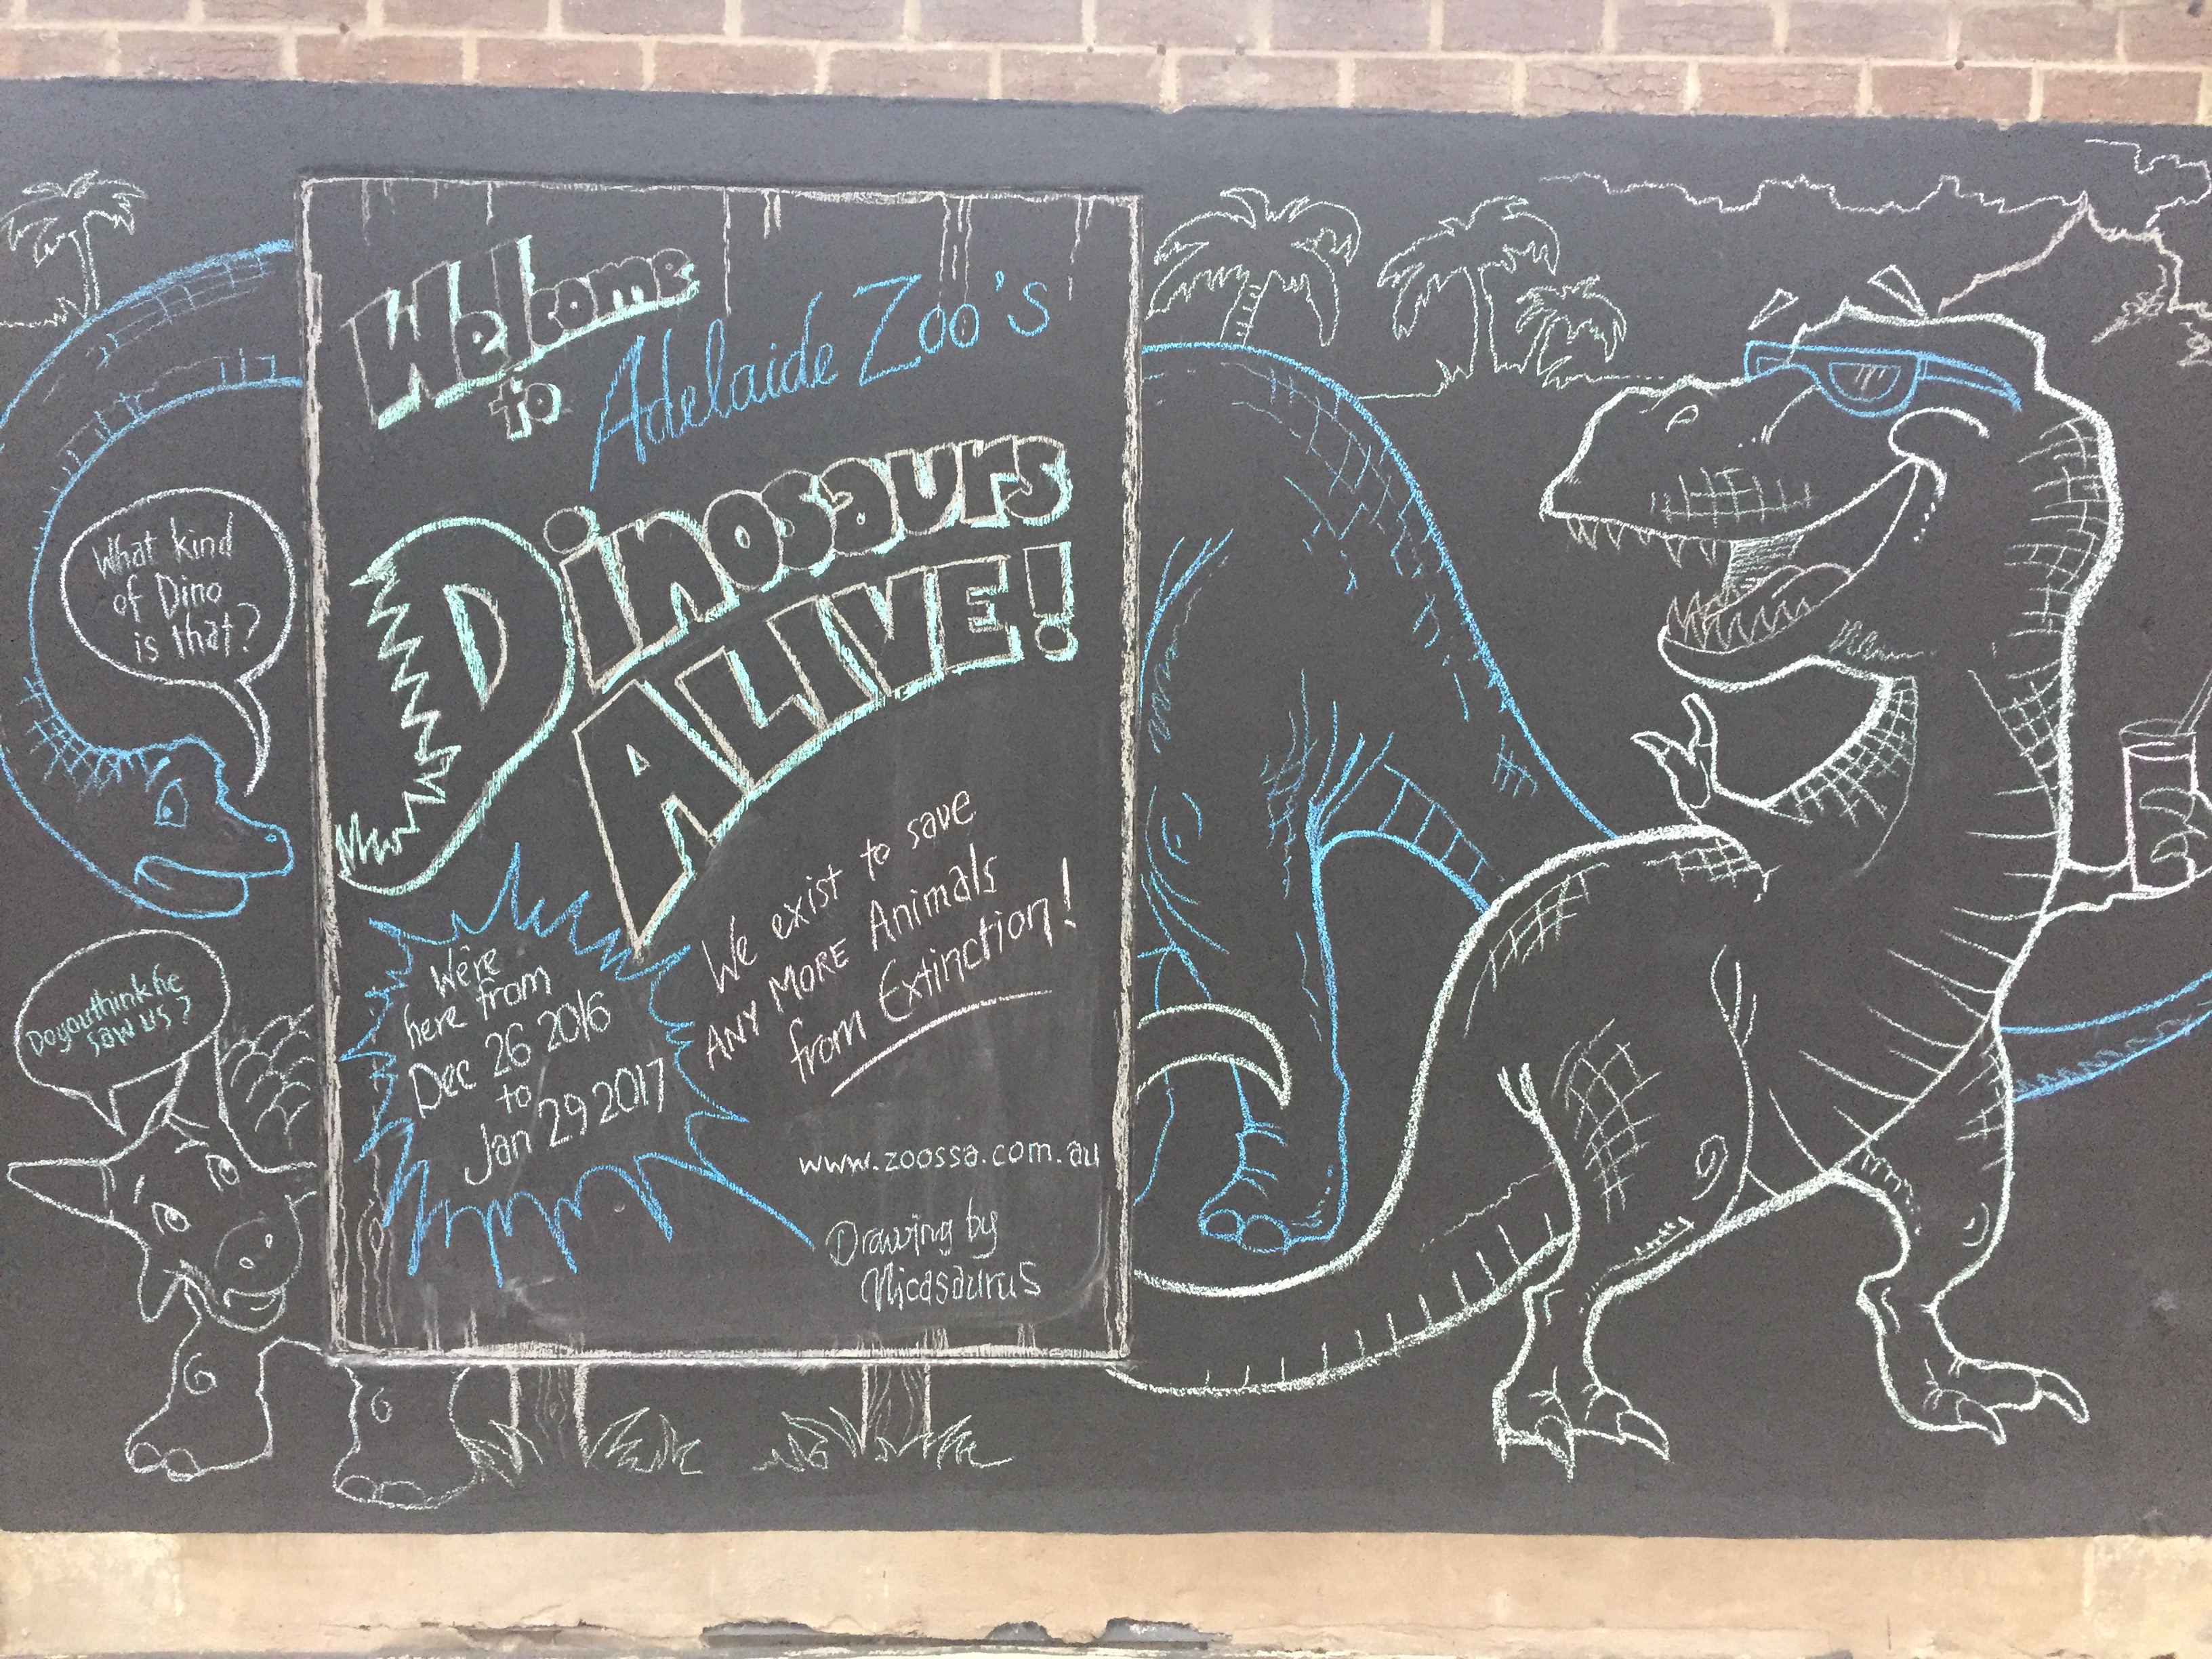 What kind
of Dino
is that?
Doyouthink he
saw us?
Welcome
to Adelaide Zoo's
Dinosaurs
ALIVE!
We're
here from
Dec 26 2016
to
Jan 29 2017
We exist to save
ANY MORE Animals
from Extinction!
www.zoossa.com.au
Drawing by
Nicasaurus